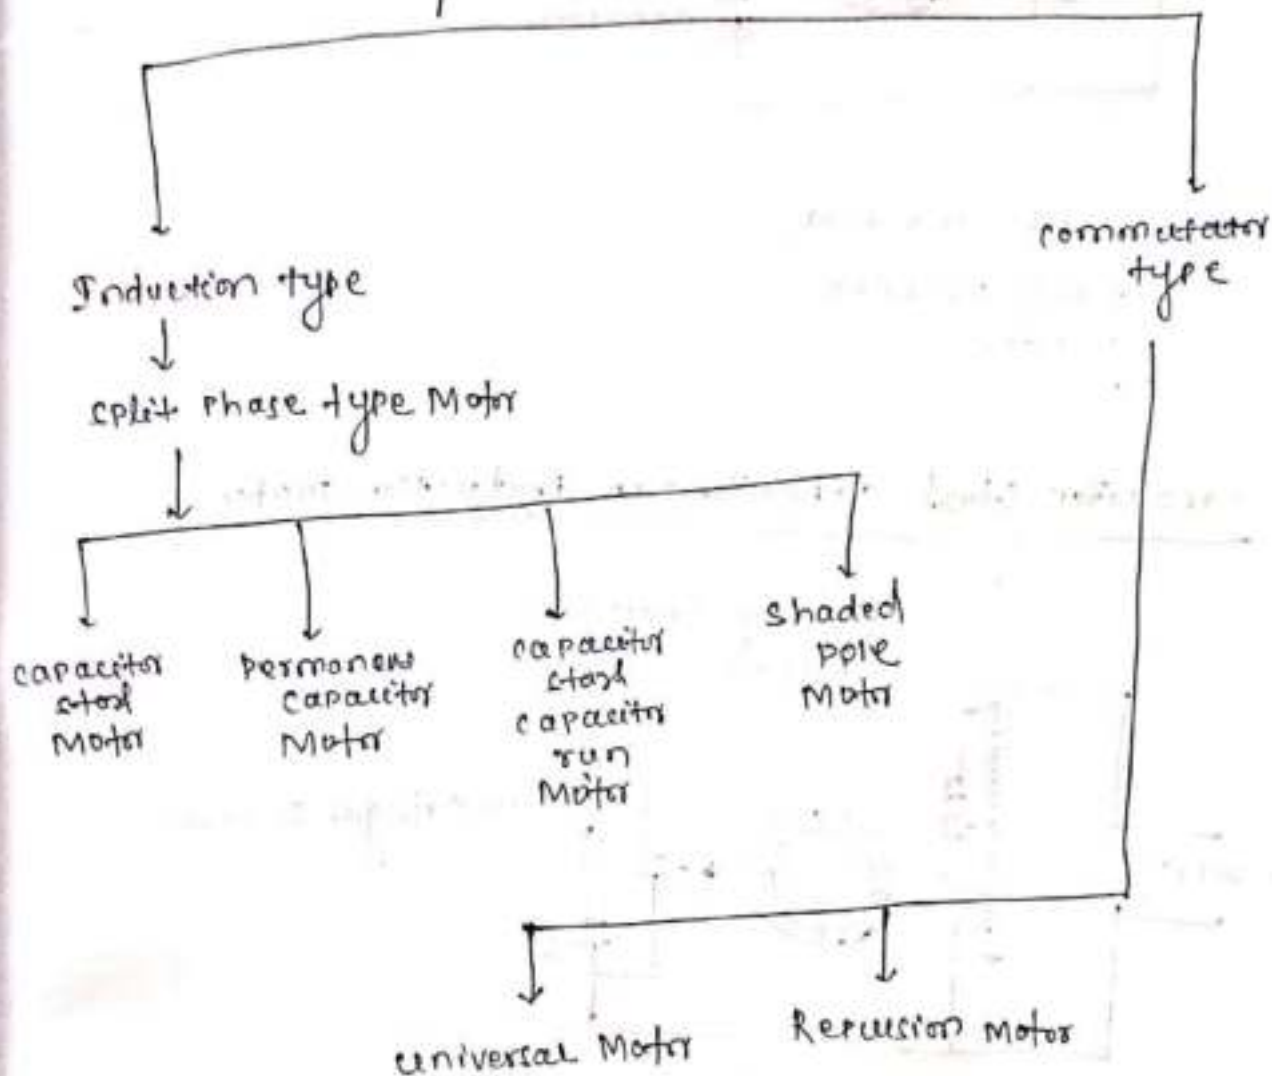 Induction type
commutator
type
split phase type Motor
capacitor
start
Motor
permanent
capacitor
Motor
capacitor
start
capacitor
run
Motor
shaded
pole
Motor
universal Motor
Repulsion Motor